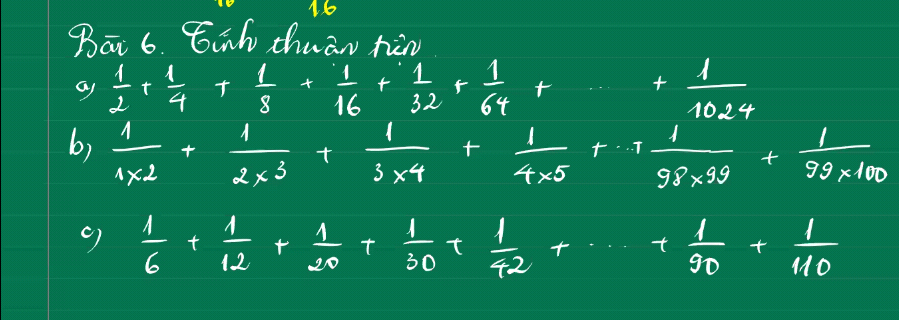 16
Bài 6. Tính thuận tiện
a) 1/2 + 1/4 + 1/8 + 1/16 + 1/32 + 1/64 + ... + 1/1024
b) 1/1×2 + 1/2×3 + 1/3×4 + 1/4×5 + ...+ 1/98×99 + 1/99×100
c) 1/6 + 1/12 + 1/20 + 1/30 + 1/42 + ... + 1/90 + 1/110